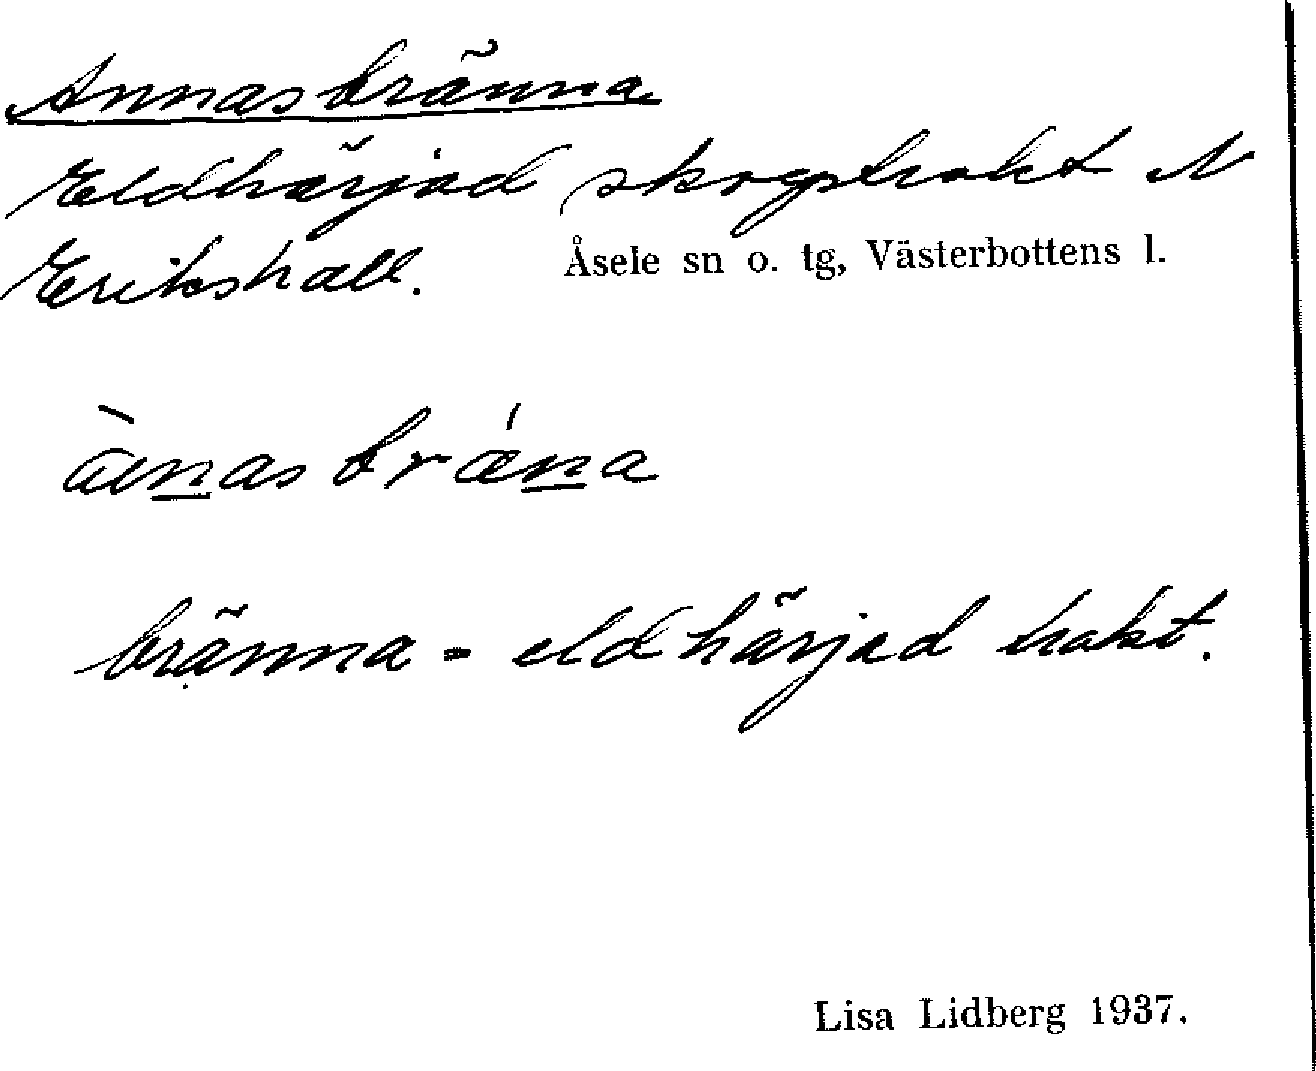 Annasbränna
Eldhärjad skogstrakt N
Erikshall. Åsele sn o. tg, Västerbottens l.
ànasbrǽna
bränna = eldhärjad trakt.
Lisa Lidberg 1937.